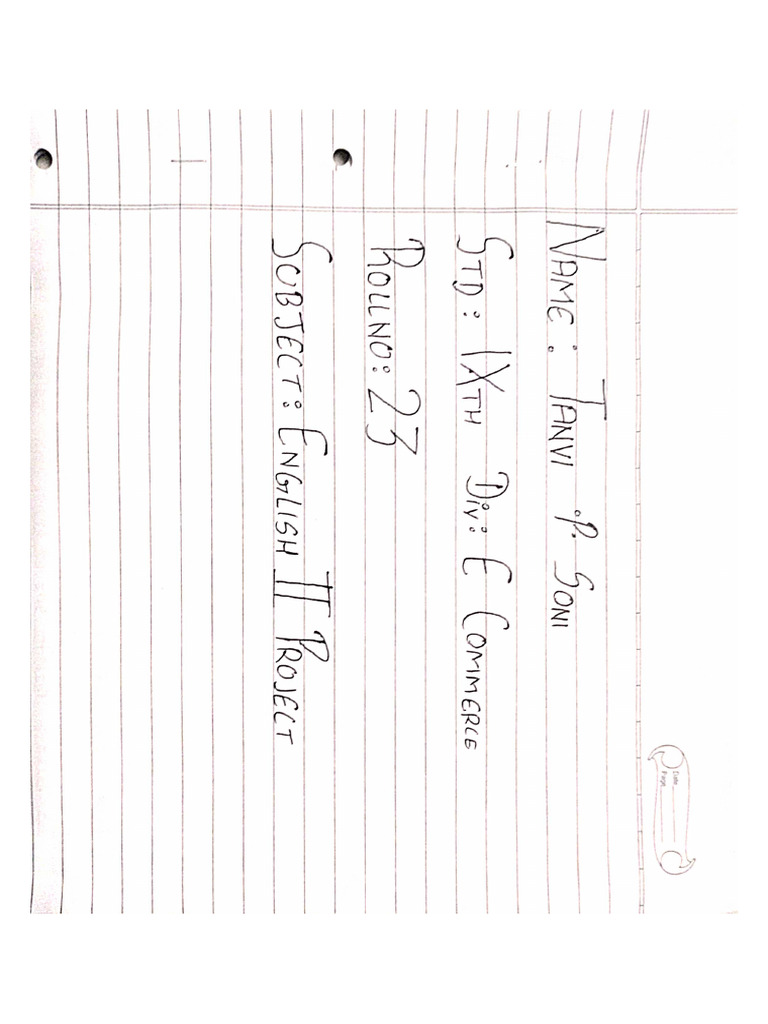 Date
Page
NAME: TANVI P. SONI
STD: IXTH DIV: E COMMERCE
ROLLNO: 23
SUBJECT: ENGLISH II PROJECT